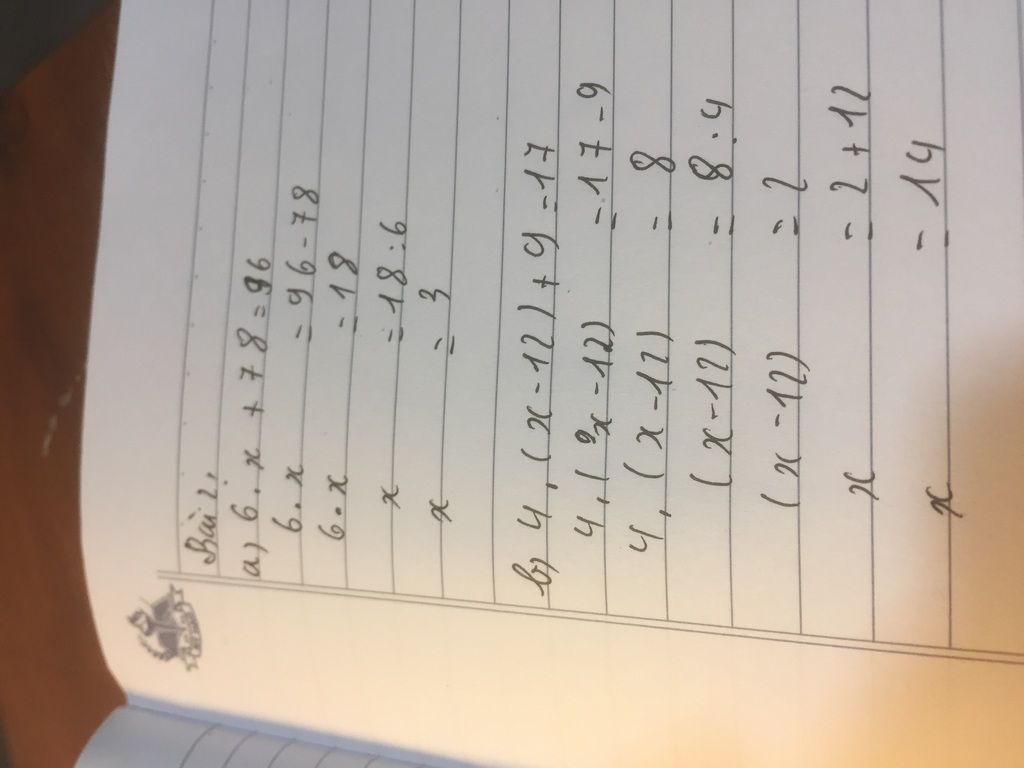 Bài 2.
a) 6 . x + 78 = 96
6 . x = 96 - 78
6 . x = 18
x = 18 : 6
x = 3
b) 4 . (x - 12) + 9 = 17
4 . (x - 12) = 17 - 9
4 . (x - 12) = 8
(x - 12) = 8 : 4
(x - 12) = 2
x = 2 + 12
x = 14